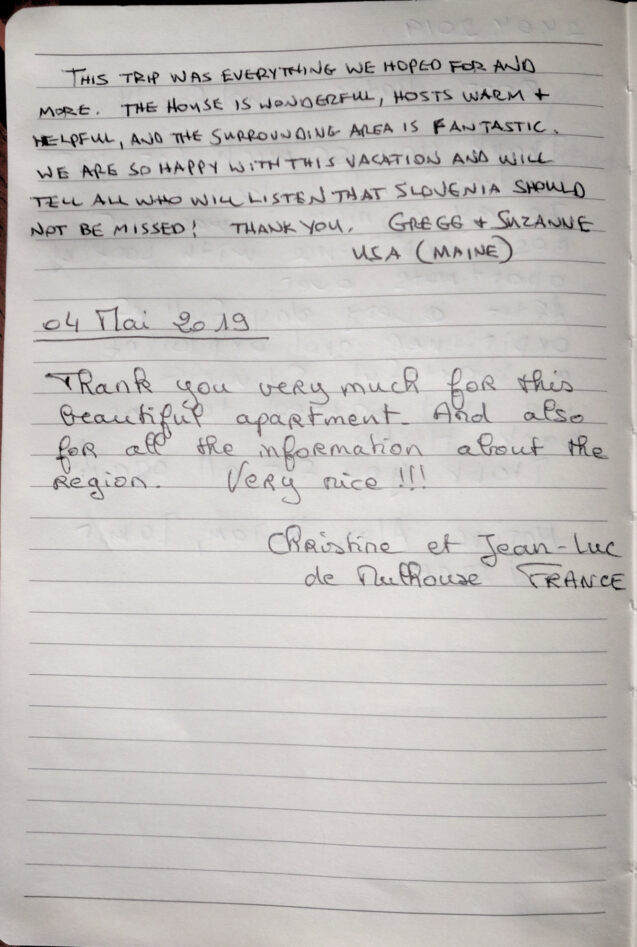 THIS TRIP WAS EVERYTHING WE HOPED FOR AND
MORE. THE HOUSE IS WONDERFUL, HOSTS WARM +
HELPFUL, AND THE SURROUNDING AREA IS FANTASTIC.
WE ARE SO HAPPY WITH THIS VACATION AND WILL
TELL ALL WHO WILL LISTEN THAT SLOVENIA SHOULD
NOT BE MISSED! THANK YOU. GREGG + SUZANNE
USA (MAINE)
04 Mai 2019
Thank you very much for this
beautiful apartment. And also
for all the information about the
region. Very nice !!!
Christine et Jean-Luc
de Mulhouse FRANCE